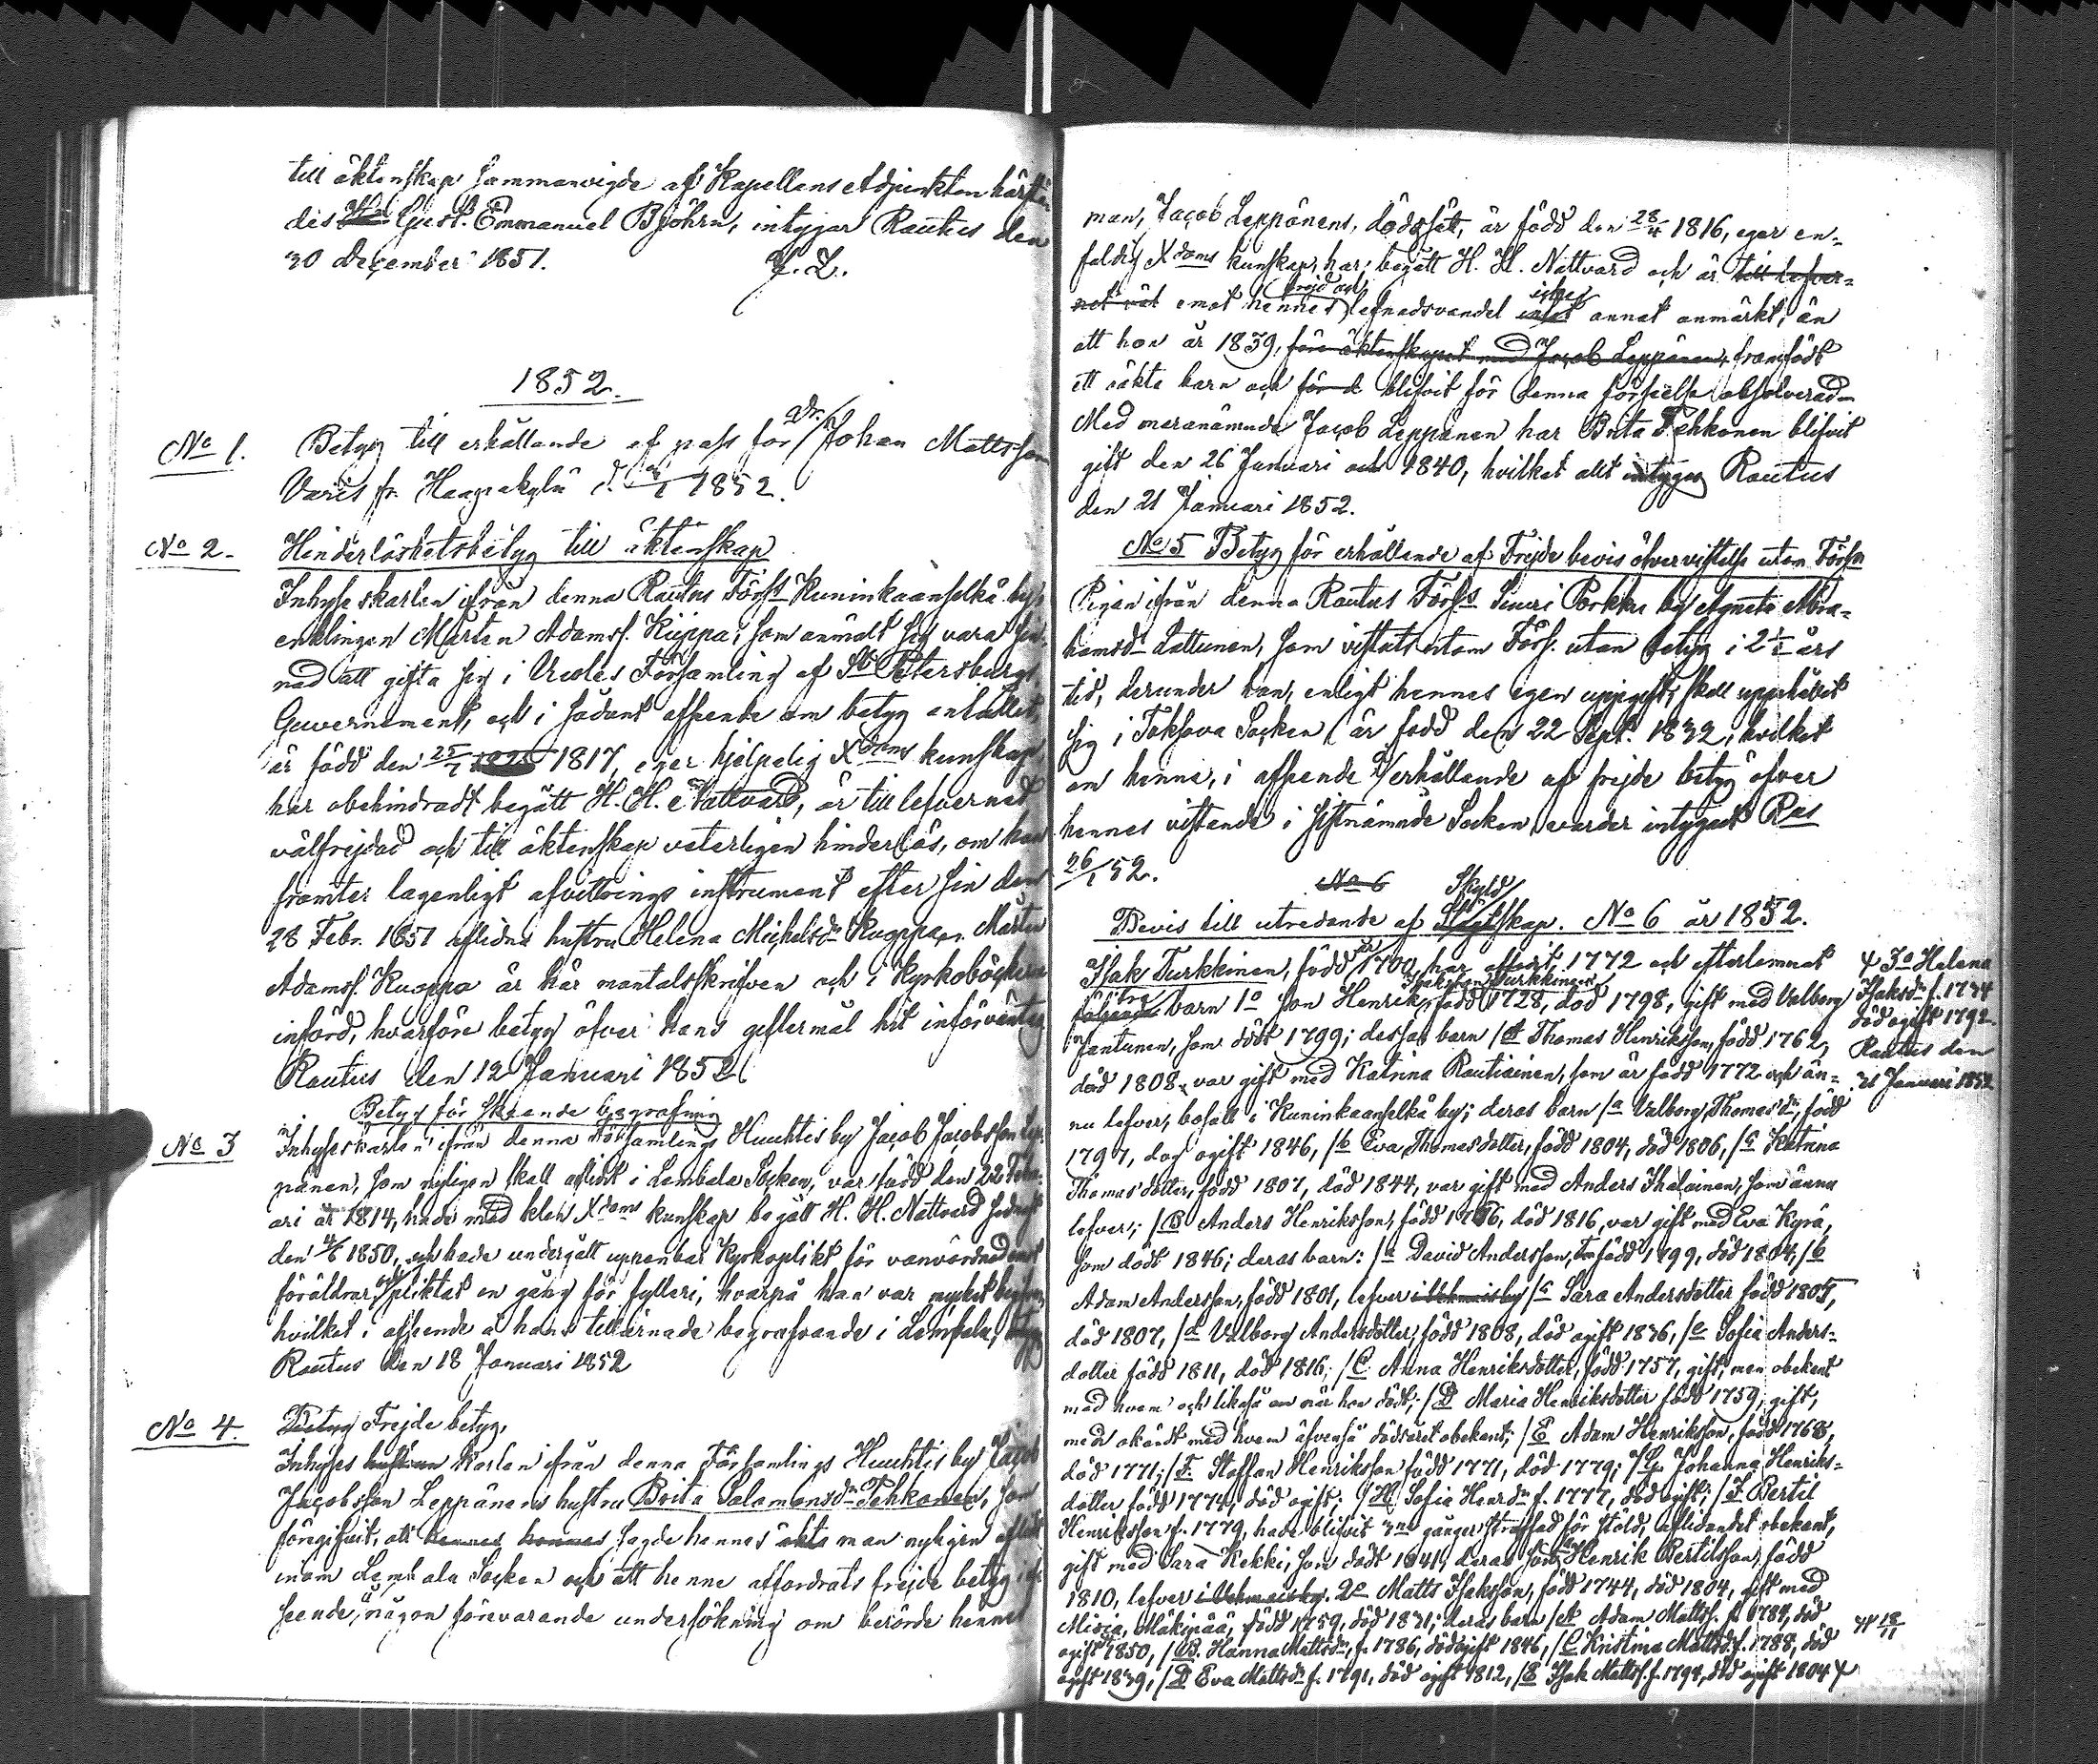 till äktenskap sammanvigde af Kapellans Adjunkten härstä-
des Gust. Emmanuel Björhn, intygar Rautus den
30 December 1851.
1852.
No 1.
Betyg till erhållande af pass för Dr. Johan Mattsson
Varis fr. Haapakylä d. 1852.
No 2.
Hinderlöshetsbetyg till äktenskap
Inhyses karlen ifrån denna Rautus Förs. Kuninkaanselkä by,
enklingen Mårten Adamss. Kuppa, som anmält sig vara sin-
nad att gifta sig i Församling af St Petersburgs
Guvernement, och i sådant afseende om betyg anhållit,
är född den 25/7 1817, eger hjelpelig Xdoms kunskap,
har obehindradt begått H. H. Nattvard, är till lefvernet
välfrejdad och till äktenskap veterligen hinderlös, om han
framter lagenligt afvittrings instrument efter sin den
28 Febr. 1851 aflidna hustru Helena Michelsdr Kuoppa. Mårten
Adamss. Kuoppa är här mantalsskrifven och i Kyrkoböckerna
införd, hvarföre betyg öfver hans giftermål hit införväntas
Rautus den 12 Januari 1852
Betyg för skeende begrafning
No 3
Inhyseskarlen ifrån denna Församlings Huuhtis by Jacob Jacobsson Lep-
pänen, som nyligen skall aflidit i Lembala Socken, var född den 22 Febru-
ari år 1814, hade med klen Xdoms kunskap begått H. H. Nattvard sednast
den 1850, och hade undergått uppenbar Kyrkoplikt för vanvördnad emot
föräldrar, och pliktat en gång för fylleri, hvarpå han var mycket begifven,
hvilket i afseende å hans tillernade begrafvande i Lembala, intygas
Rautus den 18 Januari 1852
No 4.
Betyg Frejde betyg,
Inhyses hustrun Karlen ifrån denna Församlings Huuhtis by Jacob
Jacobsson Leppänens hustru Brita Salomonsdr Tehkonen, som
föregifvit, att hennes sagde hennes äkta man nyligen aflidit
inom Lembala Socken och att henne affordrats frejde betyg i af-
seende, någon förevarande undersökning om berörde hennes
man, Jacob Leppänens, dödssät, är född den 28/4 1816, eger en-
faldig Xdoms kunskap, har begått H. H. Nattvard och är till lefver-
net väl emot hennes frejd och lefnadsvandel icke annat anmärkt, än
att hon år 1839, före äktenskapet med Jacob Leppänen, framfödt
ett oäkta barn och för d blifvit för denna förseelse absolverad.
Med meranämnde Jacob Leppänen har Brita Tehkonen blifvit
gift den 26 Januari 1840, hvilket allt intygas Rautus
den 21 Januari 1852.
No 5 Betyg för erhållande af Frejde bevis öfver vistelse utom Förs.
Pigan ifrån denna Rautus Förs. Suuri Porkku by Agneta Abra-
hamsdr Lattunen, som vistats utom Förs. utan betyg i 2½ års
tid, derunder hon, enligt hennes egen uppgift, skall uppehållit
sig i Toksova Socken är född den 22 Sept. 1832, hvilket
om henne, i afseende å erhållande af frejde betyg öfver
hennes vistande i sistnämnde Socken, varder intygadt Ras
26/1 52.
No 6
Bevis till utredande af Skyldskap. No 6 år 1852.
Isak Turkkinen, född år 1700, har aflidit 1772 och efterlemnat
följande tre barn 1o son Henrik Isaksson Turkkinen, född 1728, död 1798, gift med Valborg
Jantunen, som dödt 1799; dessas barn /A Thomas Henriksson, född 1762,
död 1808, var gift med Katrina Rautiainen, som är född 1772 och än-
nu lefver, bosatt i Kuninkaanselkä by; deras barn /a Valborg Thomasdr, född
1797, dog ogift 1846, /b Eva Thomasdotter, född 1804, död 1806, /c Katrina
Thomasdotter, född 1807, död 1844, var gift med Anders Ihalainen, som ännu
lefver; /B Anders Henriksson, född 1766, död 1816, var gift med Eva Kyrö,
som dödt 1846; deras barn: /a David Andersson, född 1799, död 1804, /b
Adam Andersson, född 1801, lefver /c Sara Andersdotter född 1805,
död 1807, /d Valborg Andersdotter, född 1808, död ogift 1836, /e Sofia Anders-
dotter född 1811, död 1816; /C Anna Henriksdotter, född 1757, gift, men obekant
med hvem och likaså om när hon dödt; /D Maria Henriksdotter född 1759, gift,
men okändt med hvem äfvenså dödsåret obekant; /E Adam Henriksson, född 1768,
död 1771; /F. Staffan Henriksson född 1771, död 1779; /G Johanna Henriks-
dotter född 1774, död ogift; /H Sofia Henrdr f. 1777, död ogift; /I Bertil
Henriksson f. 1779, hade blifvit 3ne gånger straffad för stöld, aflidandet obekant,
gift med Sara Kekki, som dödt 1841, deras son Henrik Bertilsson, född
1810, lefver. 2o Matts Isaksson, född 1744, död 1804, gift med
Maria Mäkipää, född 1759, död 1831; deras barn /A Adam Mattss. f. 1784, död
ogift 1850, /B. Hanna Mattsdr, f. 1786, död ogift 1846, /C Kristina Mattsd. f. 1788, död
ogift 1839, /D Eva Mattsdr f. 1791, död ogift 1812, /E Isak Mattss. f. 1794, död ogift 1804
3o Helena
Isaksdr f. 1734
död ogift 1792.
Rautus den
31 Januari 1852